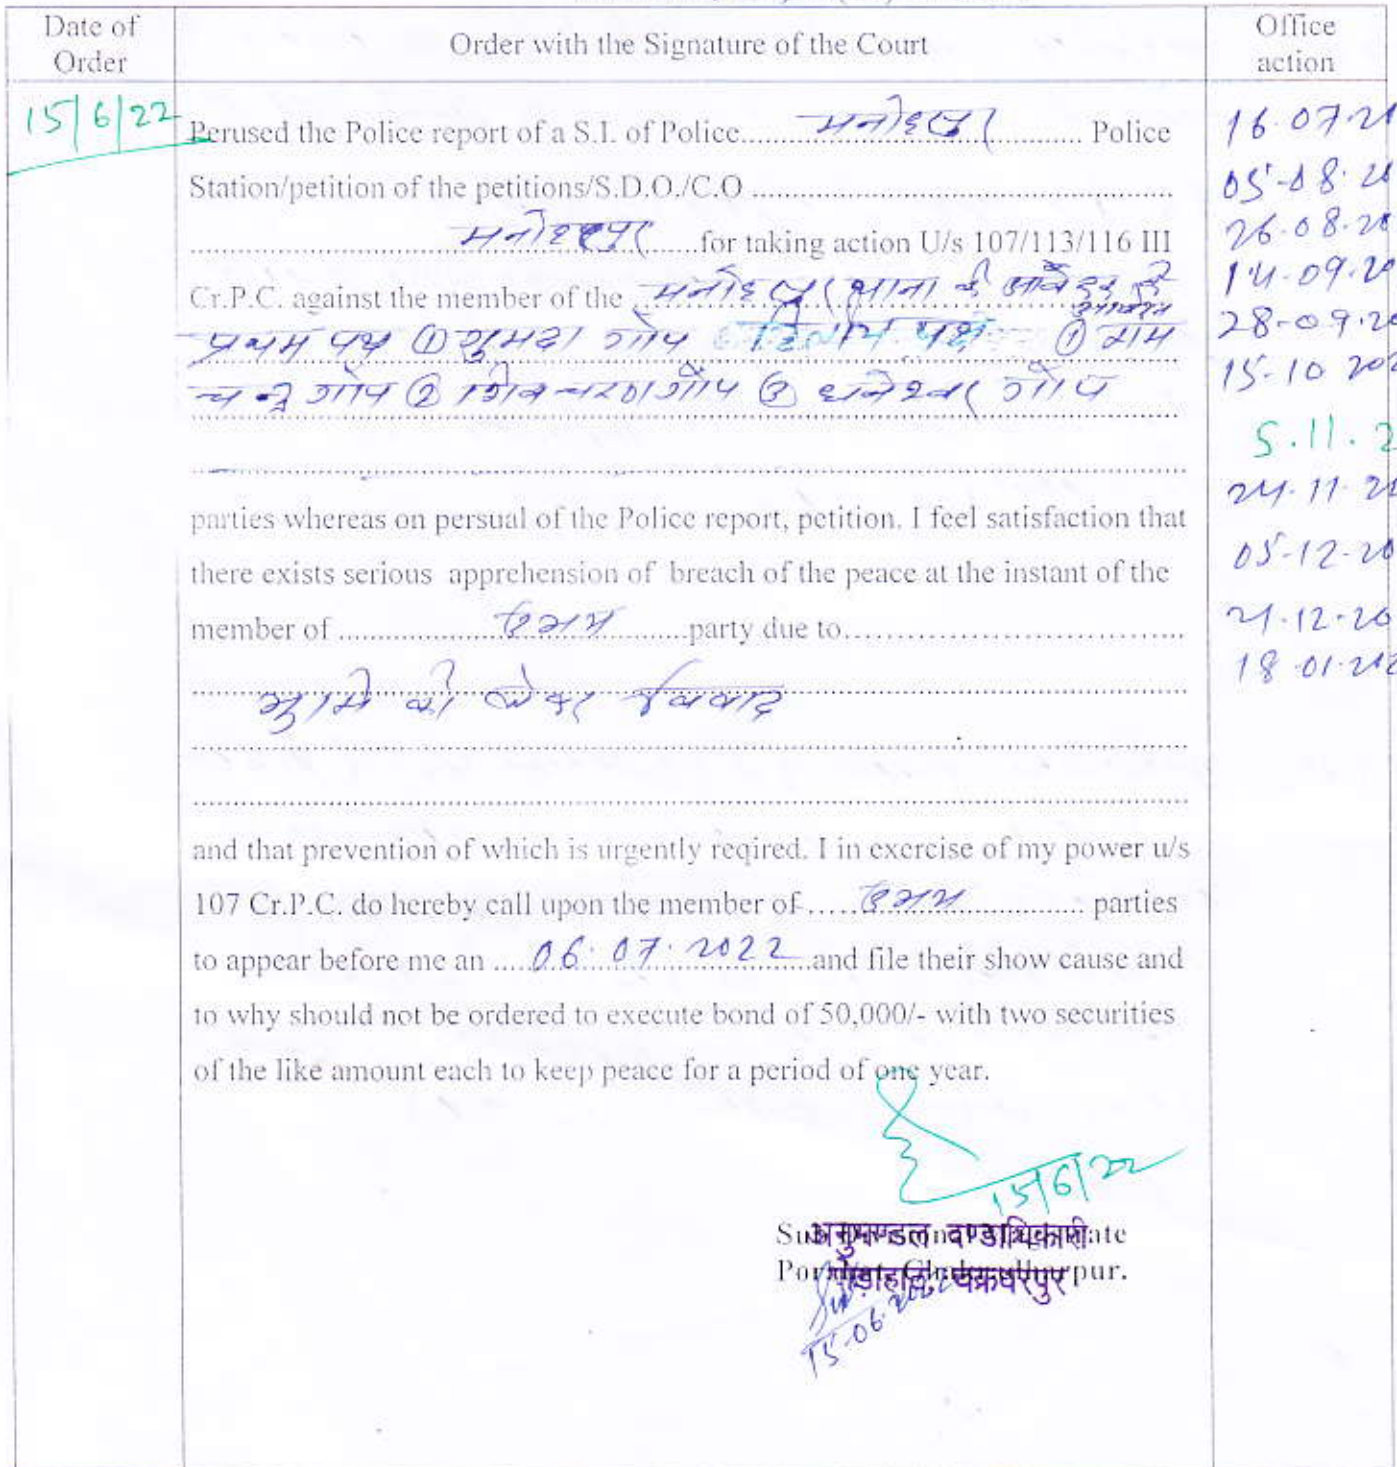 Date of
Order
Order with the Signature of the Court
Office
action
15/6/22
Perused the Police report of a S.I. of Police.......... मनोहरपुर .......... Police
Station/petition of the petitions/S.D.O./C.O ..........
.......... मनोहरपुर ..........for taking action U/s 107/113/116 III
Cr.P.C. against the member of the मनोहरपुर थाना के
प्रथम पक्ष ① गोप द्वितीय पक्ष ① राम
चन्द्र गोप ② शिवचरण गोप ③ धनेश्वर गोप
parties whereas on persual of the Police report, petition. I feel satisfaction that
there exists serious apprehension of breach of the peace at the instant of the
member of .......... उभय ..........party due to..........
भूमि को लेकर विवाद
and that prevention of which is urgently reqired. I in exercise of my power u/s
107 Cr.P.C. do hereby call upon the member of ..... उभय .......... parties
to appear before me an ..... 06.07.2022 .....and file their show cause and
to why should not be ordered to execute bond of 50,000/- with two securities
of the like amount each to keep peace for a period of one year.
15/6/22
Sub Divisional Magistrate
Porahat, Chakradharpur.
अनुमण्डल दण्डाधिकारी
पोड़ाहाट, चक्रधरपुर
15.06.2022
16.07.2
05.08.20
26.08.20
14.09.20
28-09.20
15-10 202
5.11.2
24.11.2
05-12-20
21.12.20
18.01.202